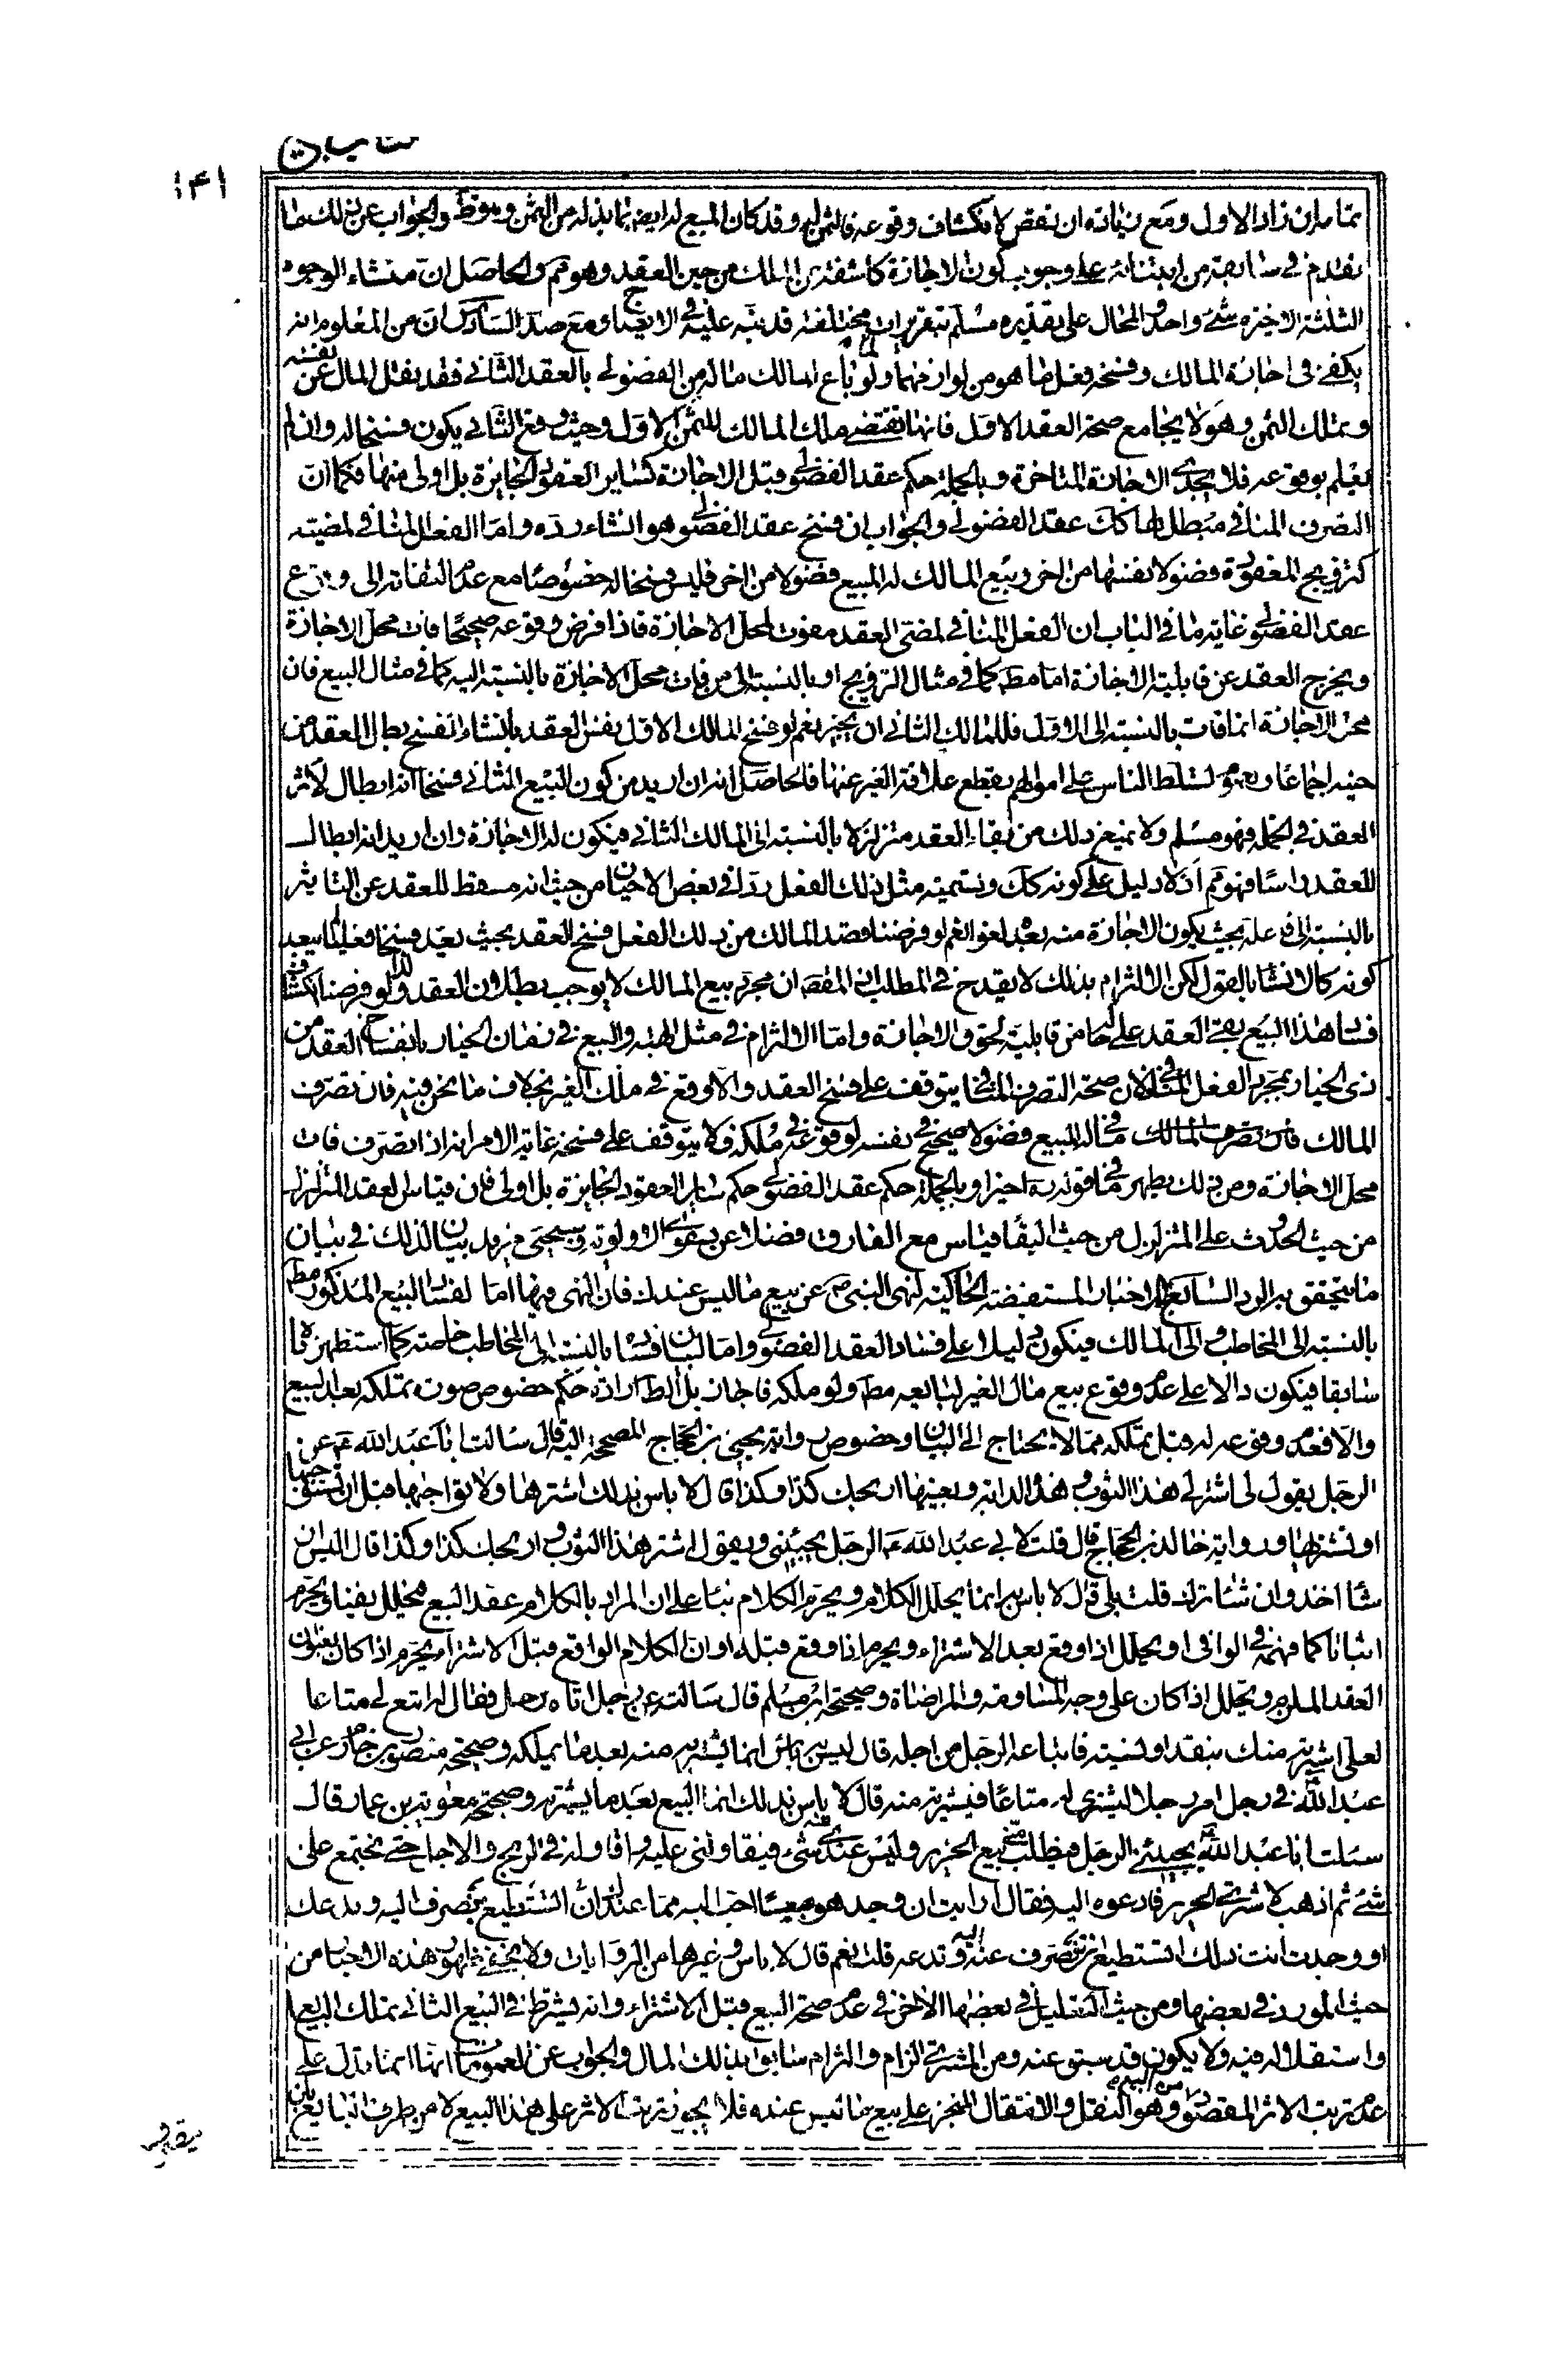 كتاب البيع
١٤١
تمامه ان زاد الاول ومع زيادته ان نقص لانكشاف وقوعه في ملكه وقد كان المبيع له ايضا بما بذله من الثمن وهو ظ والجواب عن ذلك ما
تقدم في سابقه من ابتنائه على وجوب كون الاجازة كاشفة عن الملك من حين العقد وهو مم والحاصل ان منشاء الوجوه
الثلثة الاخيرة شئ واحد والمحال على تقديره مسلم بتقريرات مختلفة قد نبه عليه في الايضاح ومع صد السادس ان من المعلوم انه
يكفى في اجازة المالك وفسخه فعل ما هو من لوازمهما ولو باع المالك ماله من الفضولى بالعقد الثانى فقد نقل المال عن نفسه
وتملك الثمن وهو لا يجامع صحة العقد الاول فانها تقتضى ملك المالك للثمن الاول وحيث وقع الثانى يكون فسخا له وان لم
يعلم بوقوعه فلا يجدى الاجازة المتاخرة وبالجملة حكم عقد الفضولى قبل الاجازة كساير العقود الجايزة بل اولى منها فكما ان
التصرف المنافى مبطل لها كك عقد الفضولى والجواب ان فسخ عقد الفضولى هو انشاء رده واما الفعل المنافى لمضيته
كتزويج المعقودة فضولا نفسها من اخر وبيع المالك له المبيع فضولا من اخر فليس فسخا له خصوصا مع عدم التفاته الى وقوع
عقد الفضولى غاية ما في الباب ان الفعل المنافى لمضى العقد مفوت لمحل الاجازة فاذا فرض وقوعه صحيحا فات محل الاجازة
ويخرج العقد عن قابلية الاجازة اما مط كما في مثال التزويج او بالنسبة الى من فات محل الاجازة بالنسبة اليه كما في مثال البيع فان
محل الاجازة انما فات بالنسبة الى الاول فللمالك الثانى ان يجيز نعم لو فسخ المالك الاول نفس العقد بانشاء الفسخ بطل العقد من
حينه اجماعا ولعموم تسلط الناس على اموالهم بقطع علاقة الغير عنها فالحاصل انه ان اريد من كون البيع الثانى فسخا انه ابطال لاثر
العقد في الجملة فهو مسلم ولا يمنع ذلك من بقاء العقد متزلزلا بالنسبة الى المالك الثانى فيكون له الاجازة وان اريد انه ابطال
للعقد راسا فهو مم اذ لا دليل على كونه كك وتسمية مثل ذلك الفعل ردا في بعض الاحيان من حيث انه مسقط للعقد عن التاثير
بالنسبة الى فاعله بحيث يكون الاجازة منه بعده لغوا نعم لو فرضنا قصد المالك من ذلك الفعل فسخ العقد بحيث يعد فسخا فعليا لم يبعد
كونه كالانشاء بالقول لكن الالتزام بذلك لا يقدح في المطلب اذ المقصود ان مجرد بيع المالك لا يوجب بطلان العقد ولذا لو فرضنا انكشاف
فساد هذا البيع بقى العقد على حاله من قابلية لحوق الاجازة واما الالتزام في مثل الهبة والبيع في زمان الخيار بانفساخ العقد من
ذى الخيار بمجرد الفعل المنافى فلان صحة التصرف المنافى يتوقف على فسخ العقد والا وقع في ملك الغير بخلاف ما نحن فيه فان تصرف
المالك في ماله المبيع فضولا صحيح في نفسه لوقوعه في ملكه ولا يتوقف على فسخه غاية الامر انه اذا تصرف فات
محل الاجازة ومن ذلك يظهر ما في قوله ره اخيرا وبالجملة حكم عقد الفضولى حكم ساير العقود الجايزة بل اولى فان قياس العقد المتزلزل
من حيث الحدوث على المتزلزل من حيث البقاء قياس مع الفارق فضلا عن دعوى الاولوية وسيجئ مزيد بيان لذلك في بيان
ما يتحقق به الرد السابع الاخبار المستفيضة الحاكية لنهى النبى ص عن بيع ما ليس عندك فان النهى فيها اما لفساد البيع المذكور مط
بالنسبة الى المخاطب والى المالك فيكون دليلا على فساد العقد الفضولى واما لبيان فساده بالنسبة الى المخاطب خاصة كما استظهرناه
سابقا فيكون دالا على عدم وقوع بيع مال الغير لبايعه مط ولو ملكه فاجاز بل الظ ارادة حكم خصوص صورة تملكه بعد البيع
والا فعدم وقوعه له قبل تملكه مما لا يحتاج الى البيان وخصوص رواية يحيى بن الحجاج المصححة اليه قال سالت ابا عبد الله ع عن
الرجل يقول لى اشتر لى هذا الثوب وهذه الدابة وبعنيها اربحك كذا وكذا قال لا باس بذلك اشترها ولا تواجبها قبل ان تستوجبها
او تشتريها ورواية خالد بن الحجاج قال قلت لابى عبد الله ع الرجل يجيئنى ويقول اشتر هذا الثوب واربحك كذا وكذا قال اليس ان
شاء اخذ وان شاء ترك قلت بلى قال لا باس به انما يحلل الكلام ويحرم الكلام بناء على ان المراد بالكلام عقد البيع فيحلل نفيا ويحرم
اثباتا كما فهمه في الوافى او يحلل اذا وقع بعد الاشتراء ويحرم اذا وقع قبله او ان الكلام الواقع قبل الاشتراء يحرم اذا كان بعنوان
العقد الملزم ويحلل اذا كان على وجه المساومة والمراضاة وصحيحة ابن مسلم قال سالته عن رجل اتاه رجل فقال له ابتع لى متاعا
لعلى اشتريه منك بنقد او نسية فابتاعه الرجل من اجله قال ليس به باس انما يشتريه منه بعد ما يملكه وصحيحة منصور بن حازم عن ابى
عبد الله ع في رجل امر رجلا ليشترى له متاعا فيشتريه منه قال لا باس بذلك انما البيع بعد ما يشتريه وصحيحة معوية بن عمار قال
سئلت ابا عبد الله ع يجيئنى الرجل فيطلب منى بيع الحرير وليس عندى منه شئ فيقاولنى عليه واقاوله في الربح والاجل حتى نجتمع على
شئ ثم اذهب لاشترى الحرير فادعوه اليه فقال ارايت ان وجد هو مبيعا احب اليه مما عندك ايستطيع ان ينصرف اليه ويدعك
او وجدت انت ذلك اتستطيع ان تنصرف عنه وتدعه قلت نعم قال لا باس وغيرها من الروايات ولا يخفى ظهور هذه الاخبار من
حيث المورد في بعضها ومن حيث التعليل في بعضها الاخر في عدم صحة البيع قبل الاشتراء وانه يشترط في البيع الثانى تملك البايع له
واستقلاله فيه ولا يكون قد سبق عنه ومن المشترى الزام والتزام سابق بذلك المال والجواب عن العمومات انها انما تدل على
عدم ترتب الاثر المقصود من البيع وهو النقل والانتقال المنجز على بيع ما ليس عنده فلا يجوز ترتيب الاثر على هذا البيع لا من طرف البايع بان
يتصرف